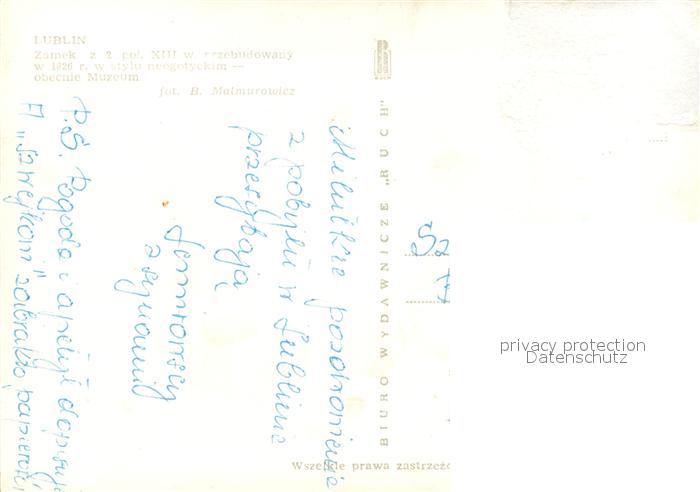 LUBLIN
Zamek z 2 poł. XIII w. przebudowany
w 1826 r. w stylu neogotyckim —
obecnie Muzeum
fot. B. Malmurowicz
Milutkie pozdrowienia
z pobytu w Lublinie
przesyłają
z synami
P.S. Pogoda i apetyt dopisują
A „szwejkom” zabrakło papierosów
BIURO WYDAWNICZE „RUCH”
Sz
Wszelkie prawa zastrzeżo
privacy protection
Datenschutz